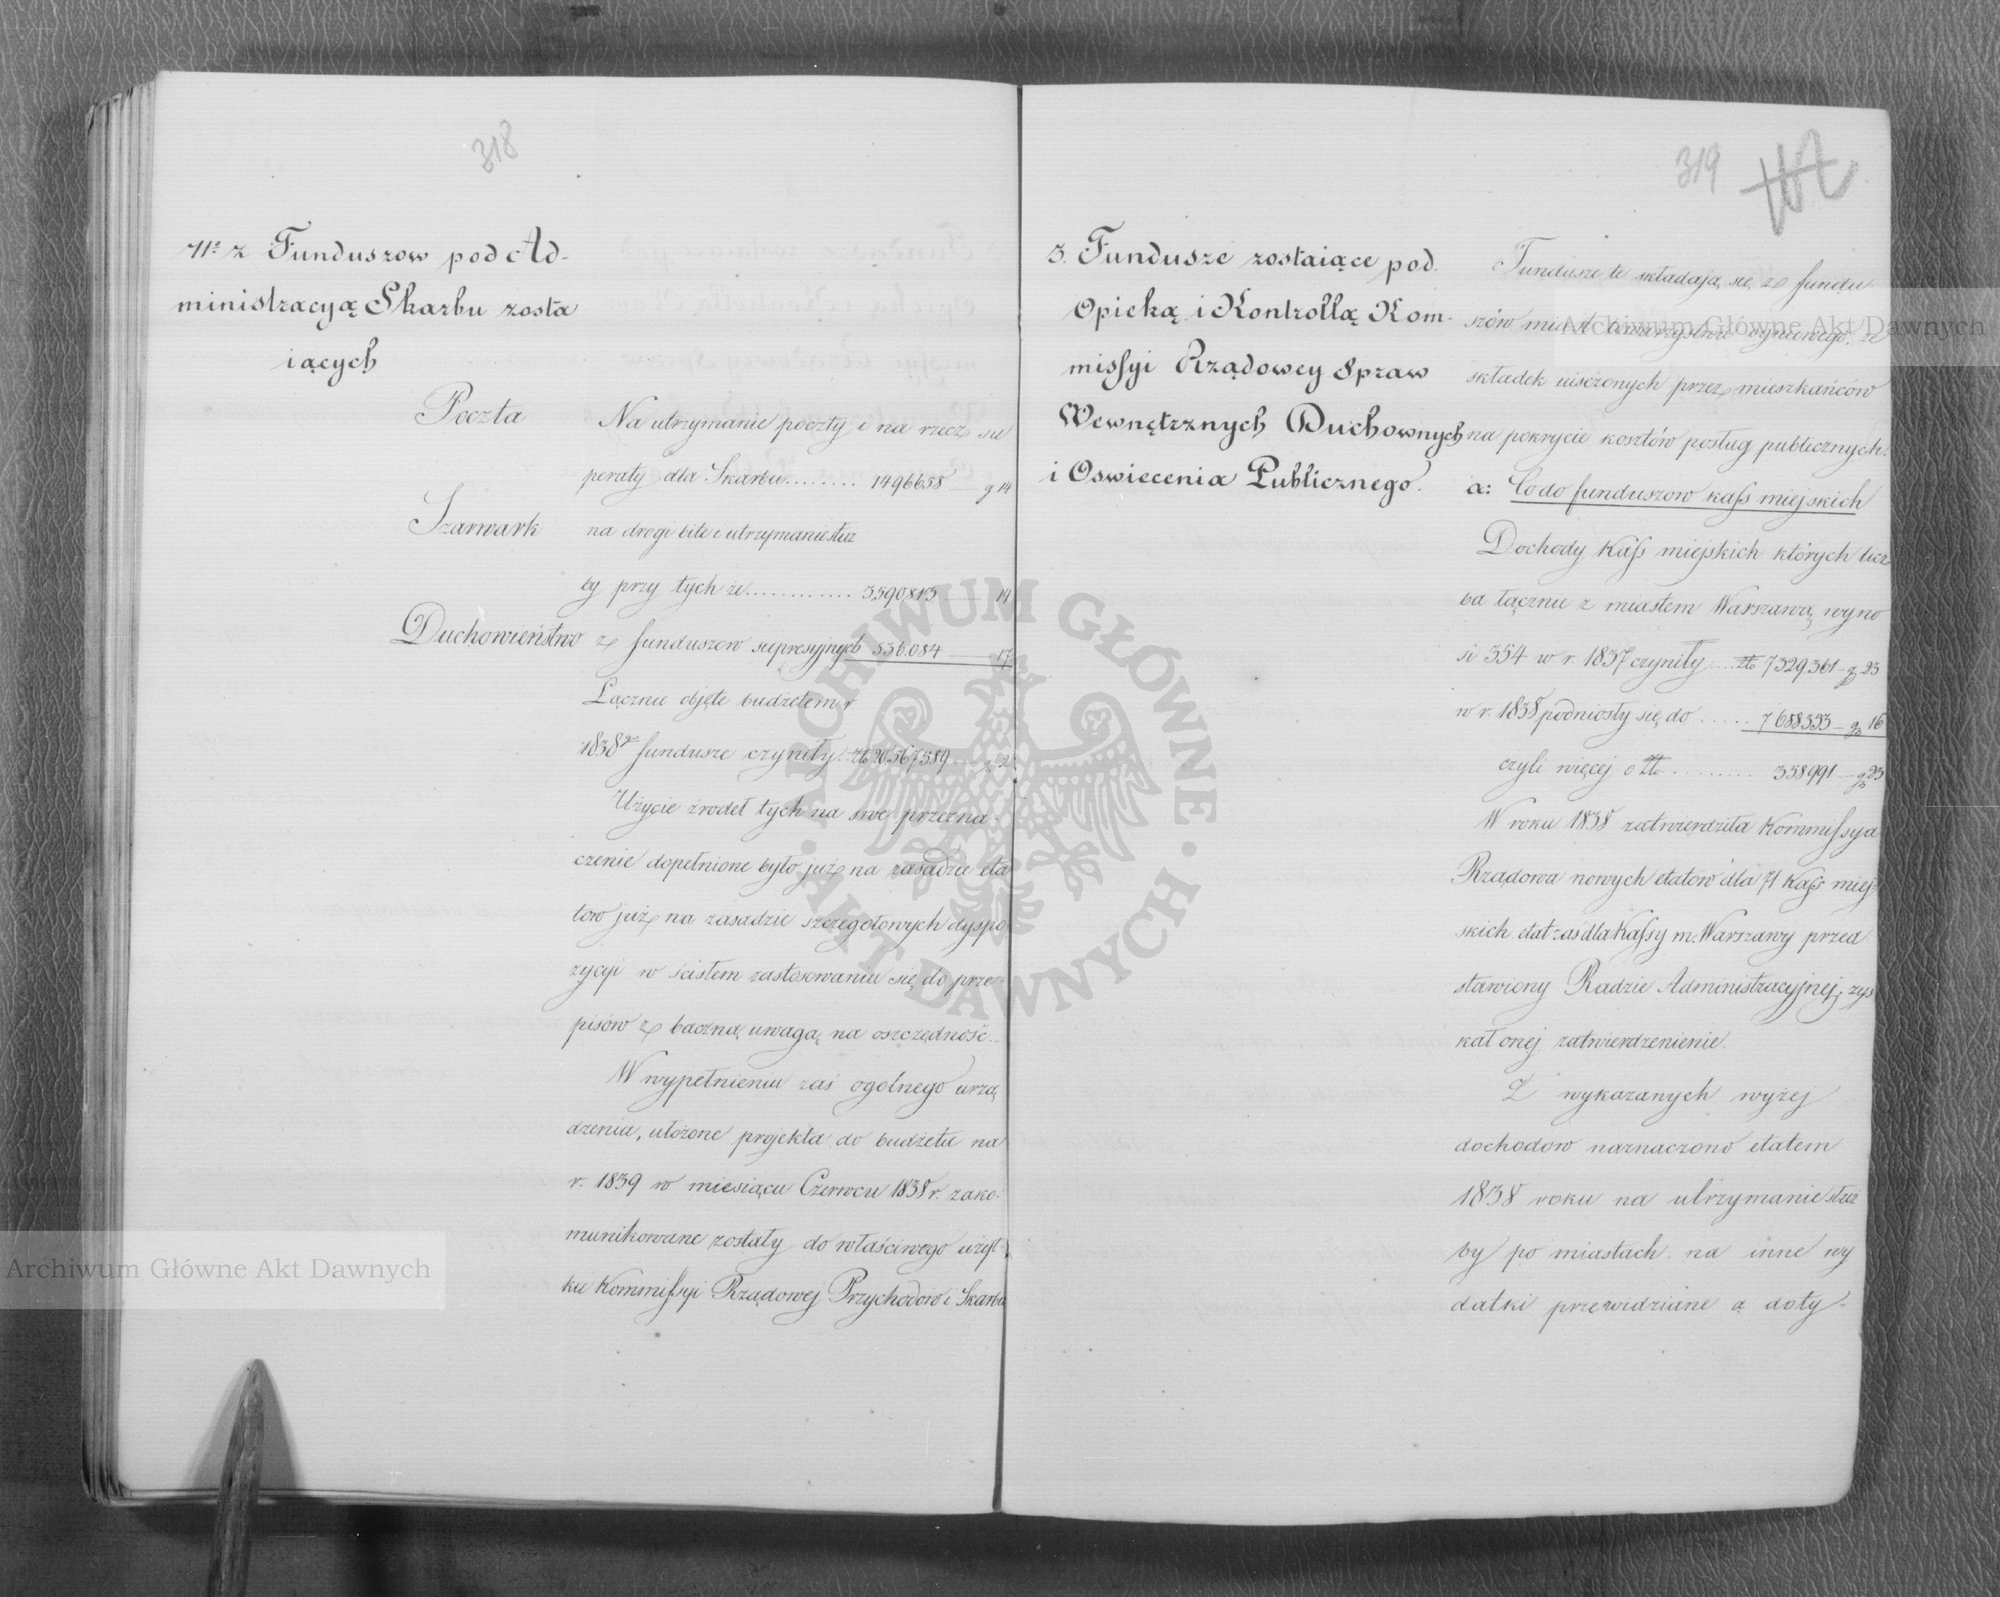 318
11º z Funduszow pod Ad-
ministracyą Skarbu zosta
iących
Poczta
Na utrzymanie poczty i na rzecz su
peraty dla Skarbu........ 1496658 — g 14
Szarwark
na drogi bite i utrzymanie służ
by przy tych że............ 3590813 — 14
Duchowieństwo
z funduszow supresyjnych 536.084 — 17
Łącznie objęte budżetem r
1838 fundusze czyniły złp 20.567589 — g 2
Użycie źrodeł tych na swe przezna-
czenie dopełnione było już na zasadzie eta
tow już na zasadzie szczegołowych dyspo
zycyi w ścisłem zastosowaniu się do prze-
pisów z baczną uwagą na oszczędność..
W wypełnieniu zaś ogolnego urzą
dzenia, ułożone projekta do budżetu na
r. 1839 w miesiącu Czerwcu 1838 r. zako-
munikowane zostały do właściwego użyt
ku Kommissyi Rządowej Przychodow i Skarbu
319
3. Fundusze zostaiące pod
Opieką i Kontrollą Kom-
missyi Rządowey Spraw
Wewnętrznych Duchownych
i Oswiecenia Publicznego.
Fundusze te składają się z fundu
szów miast towarzystwa ogniowego, ze
składek uiszczonych przez mieszkańców
na pokrycie kosztów posług publicznych.
a: Co do funduszow kass miejskich
Dochody Kass miejskich których licz
ba łącznie z miastem Warszawą wyno
si 354 w r. 1837 czyniły.... złp 7329.361 — g 23
w r. 1838 podniosły się do ..... 7688353 — g 16
czyli więcej o złp......... 358991 — g 23
W roku 1838 zatwierdziła Kommissya
Rządowa nowych etatów dla 71 Kass miej-
skich etat zas dla Kassy m. Warszawy przed
stawiony Radzie Administracyjnej, zys
kał onej zatwierdzenienie.
Z wykazanych wyżej
dochodow naznaczono etatem
1838 roku na utrzymanie służ
by po miastach na inne wy
datki przewidziane a doty-
Archiwum Główne Akt Dawnych
Archiwum Główne Akt Dawnych
ARCHIWUM GŁÓWNE · AKT DAWNYCH ·